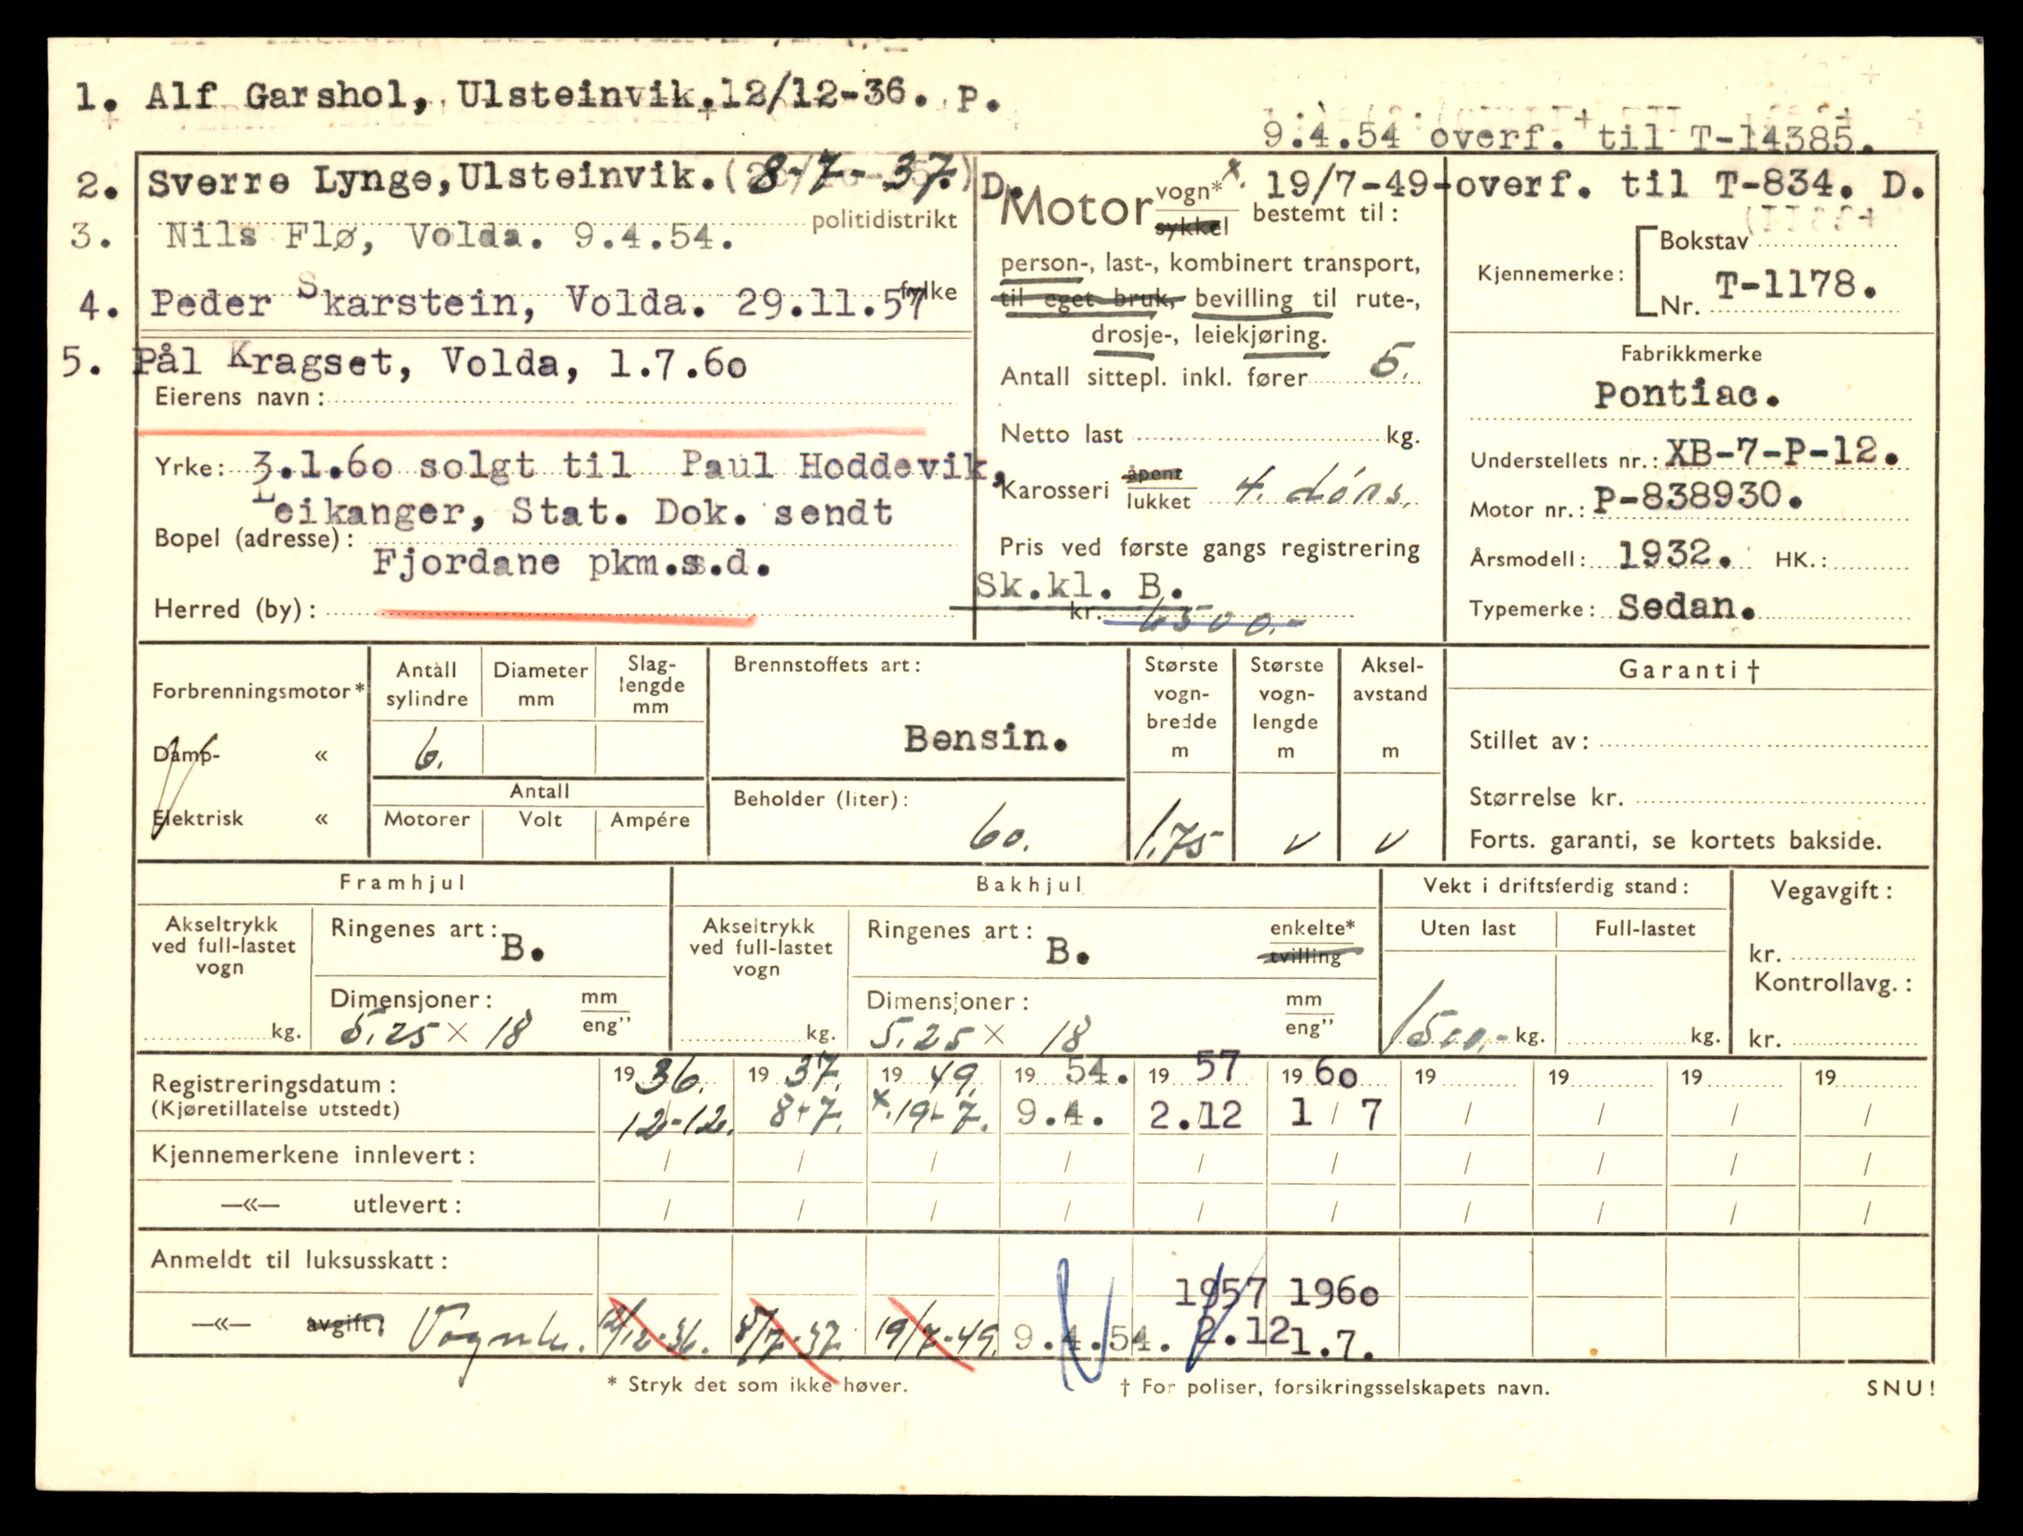 1. Alf Garshol, Ulsteinvik. 12/12-36. P.
9.4.54 overf. til T-14385.
2. Sverre Lynge, Ulsteinvik. (8-7-37.) D.
politidistrikt
3. Nils Flø, Volda. 9.4.54.
4. Peder Skarstein, Volda. 29.11.57
fylke
5. Pål Kragset, Volda, 1.7.60
Eierens navn:
Yrke: 3.1.60 solgt til Paul Hoddevik,
Leikanger, Stat. Dok. sendt
Bopel (adresse):
Fjordane pkm.s.d.
Herred (by):
x. 19/7-49-overf. til T-834. D.
Motor vogn* sykkel bestemt til:
person-, last-, kombinert transport,
til eget bruk, bevilling til rute-,
drosje-, leiekjøring.
Antall sittepl. inkl. fører 5.
Netto last kg.
Karosseri åpent lukket 4. dørs.
Pris ved første gangs registrering
Sk.kl. B.
kr. 6500.-
Kjennemerke: Bokstav
Nr. T-1178.
Fabrikkmerke
Pontiac.
Understellets nr.: XB-7-P-12.
Motor nr.: P-838930.
Årsmodell: 1932. HK.:
Typemerke: Sedan.
Forbrenningsmotor*
Damp- «
Elektrisk «
Antall sylindre
Diameter mm
Slaglengde mm
6.
Antall
Motorer Volt Ampére
Brennstoffets art:
Bensin.
Beholder (liter):
60.
Største vognbredde m
1.75
Største vognlengde m
v
Akselavstand m
v
Garanti †
Stillet av:
Størrelse kr.
Forts. garanti, se kortets bakside.
Framhjul
Akseltrykk ved full-lastet vogn
kg.
Ringenes art: B.
Dimensjoner: mm eng”
5.25 × 18
Bakhjul
Akseltrykk ved full-lastet vogn
kg.
Ringenes art: B. enkelte* tvilling
Dimensjoner: mm eng”
5.25 × 18
Vekt i driftsferdig stand:
Uten last Full-lastet
1500.- kg. kg.
Vegavgift:
kr.
Kontrollavg.:
kr.
Registreringsdatum: 1936. 1937. 1949. 1954. 1957 1960 19 19 19 19
(Kjøretillatelse utstedt) 12-12. 8-7. x. 19-7. 9.4. 2.12 1/7 / / / /
Kjennemerkene innlevert: / / / / / / / / / /
—«— utlevert: / / / / / / / / / /
Anmeldt til luksusskatt:
1957 1960
—«— avgift: Vognk. 12/12-36. 8/7-37. 19/7-49. 9.4.54. 2.12 1.7.
* Stryk det som ikke høver. † For poliser, forsikringsselskapets navn. SNU!